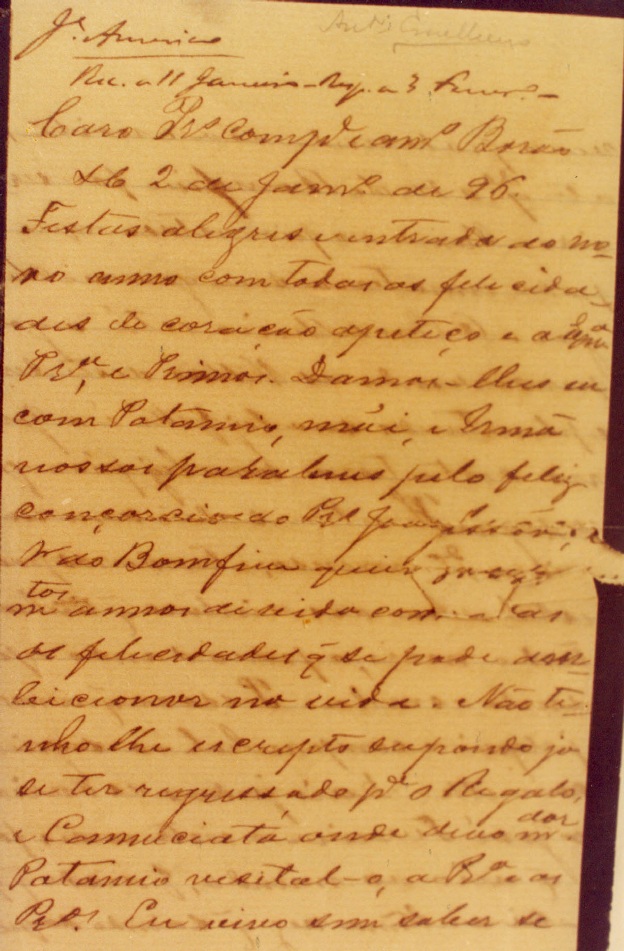 Jº Americo
Rec. a 11 Janeiro - Resp. a 3 Fever.º
Caro Prº Compe e amº Barão
2 de Janrº de 96.
Festas alegres e entrada do no-
vo anno com todas as felicida-
des de coração apeteço e a Exmª
Prª, e Primos. Damos-lhes eu
com Potamio, mãi, e Irmã
nossos parabens pelo feliz
concorcio do Prº
Sr do Bomfim queira
mtos annos de vida com as
as felicidades q se pode am-
bicionar na vida. Não te-
nho lhe escripto suppondo já
se ter regressado pª o Regalo,
e Camuciatá onde devo mdar
Potamio visital-o, a Prª e os
Prºs. Eu vivo sem saber se